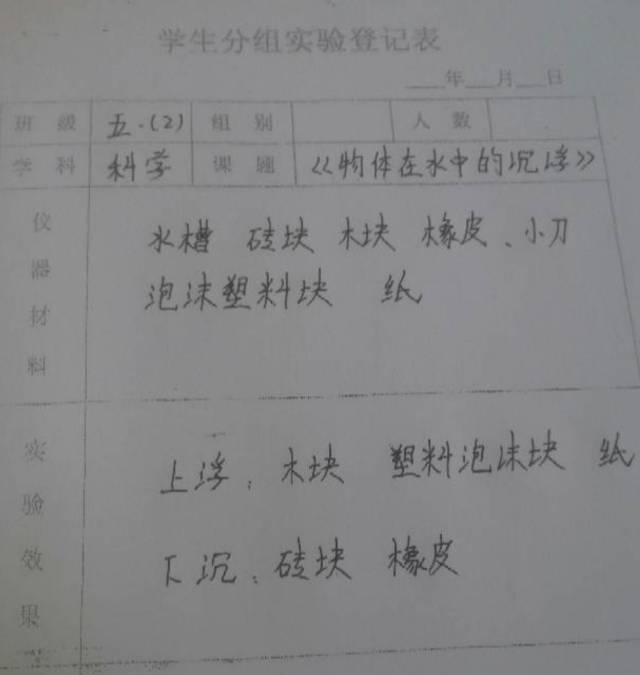 学生分组实验登记表
___年___月___日
班级 五.(2) 组别 人数
学科 科学 课题 《物体在水中的沉浮》
仪器材料
水槽 砖块 木块 橡皮、小刀
泡沫塑料块 纸
实验效果
上浮：木块 塑料泡沫块 纸
下沉：砖块 橡皮